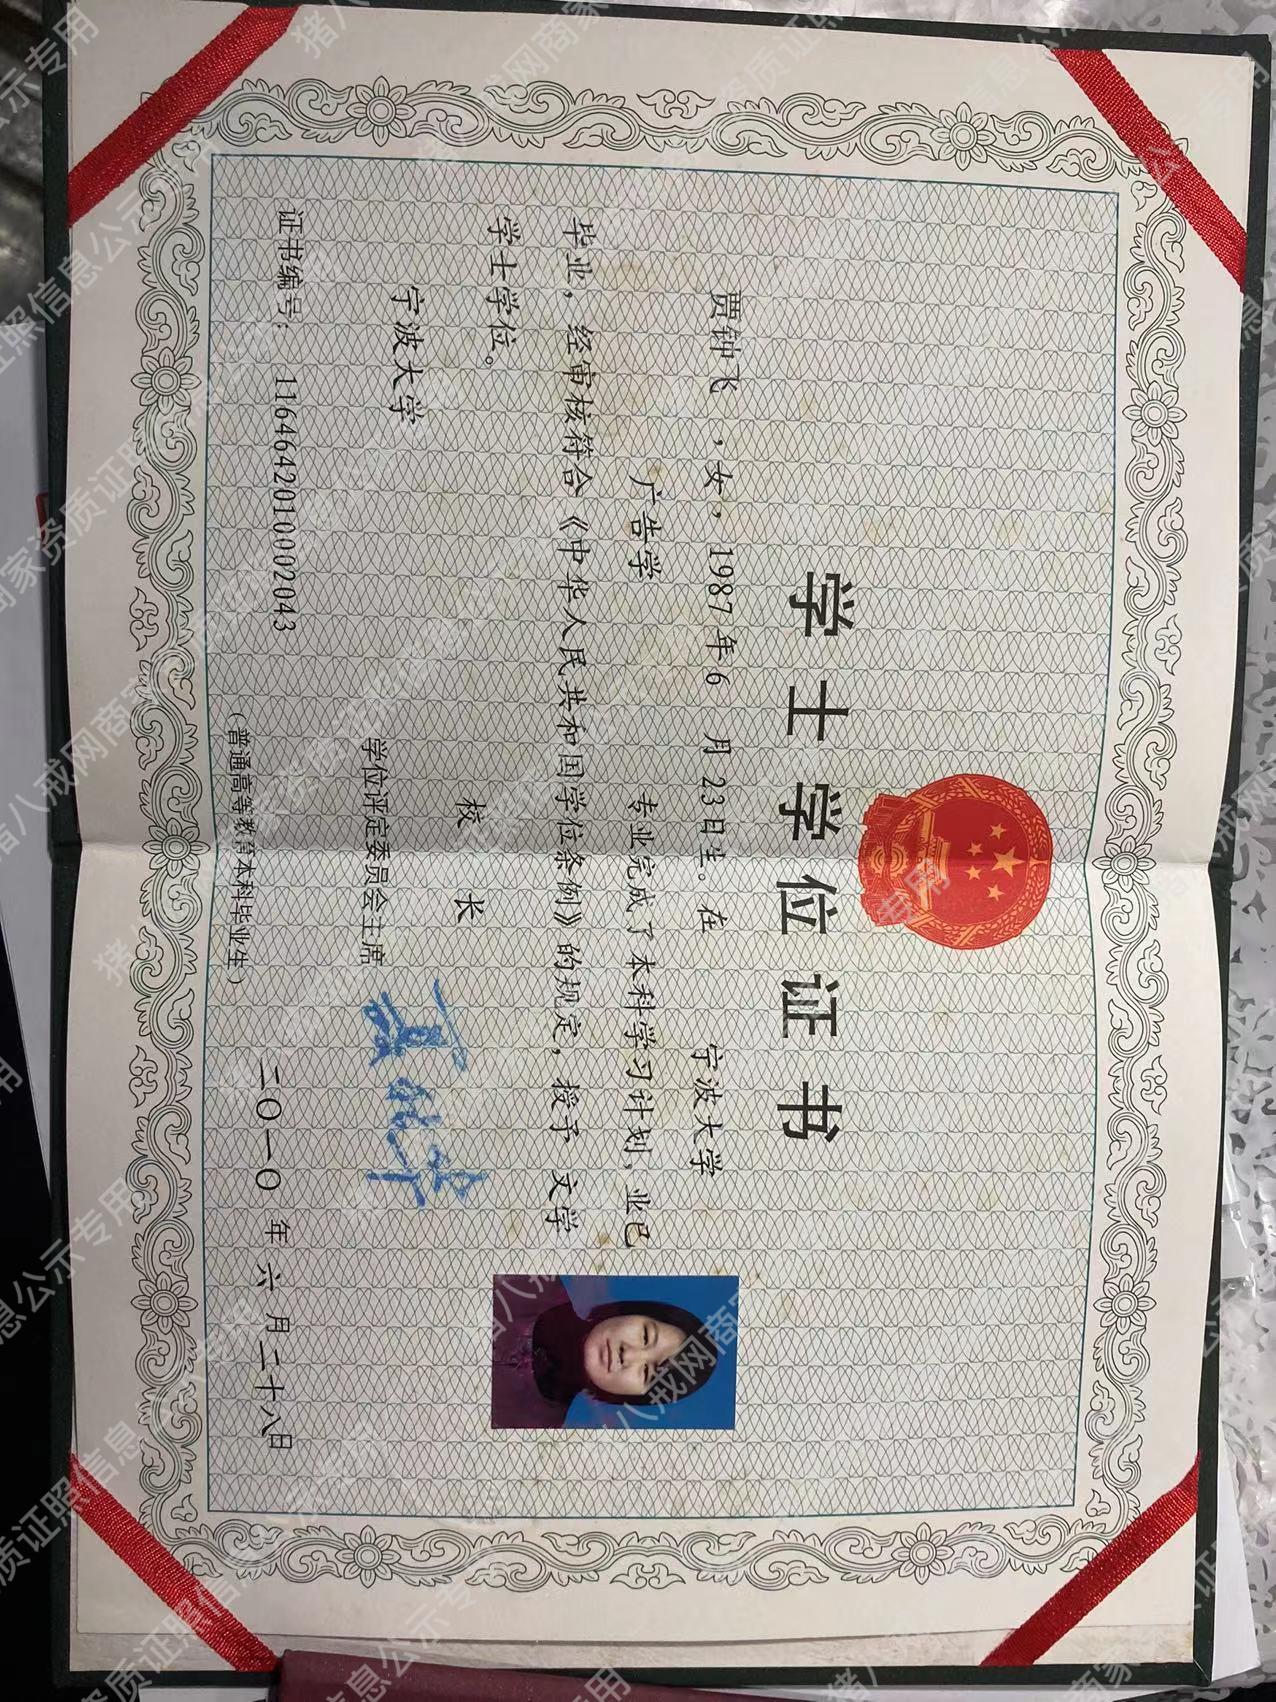 学士学位证书
贾钟飞 ，女，1987年6 月23日生。在 宁波大学
广告学 专业完成了本科学习计划，业已
毕业，经审核符合《中华人民共和国学位条例》的规定，授予 文学
学士学位。
宁波大学
校 长
学位评定委员会主席
证书编号：1164642010002043
二〇一〇 年 六 月 二十八日
（普通高等教育本科毕业生）
猪八戒网商家资质证照信息公示专用